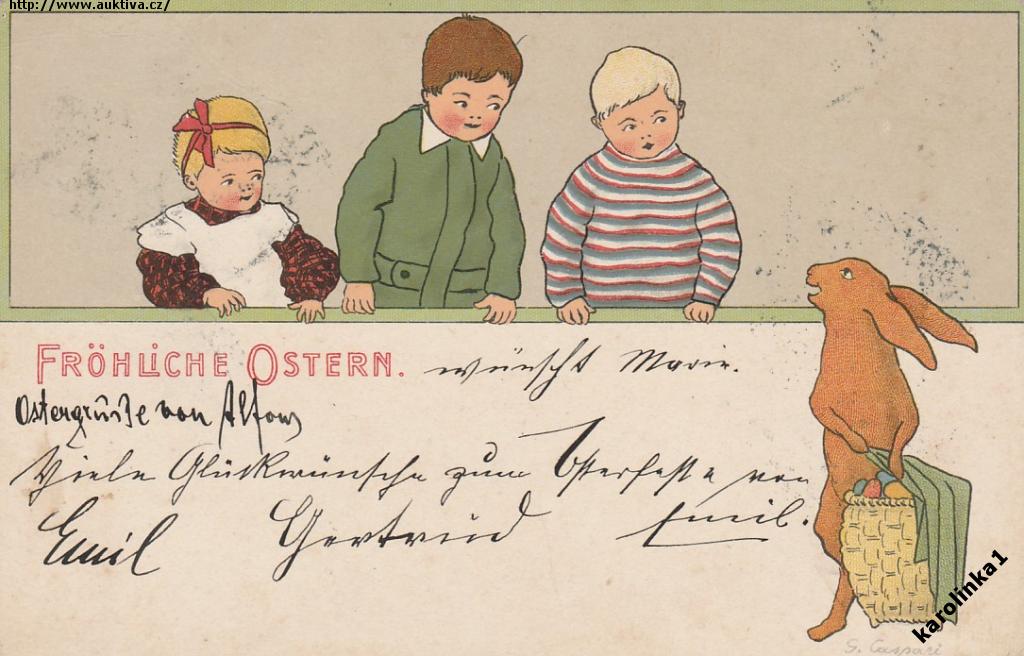 http://www.auktiva.cz/
FRÖHLICHE OSTERN. wünscht Marie.
Ostergrüße von Alfons
Viele Glückwünsche zum Osterfeste von
Emil Gertrud Emil.
karolinka1
G. Caspari